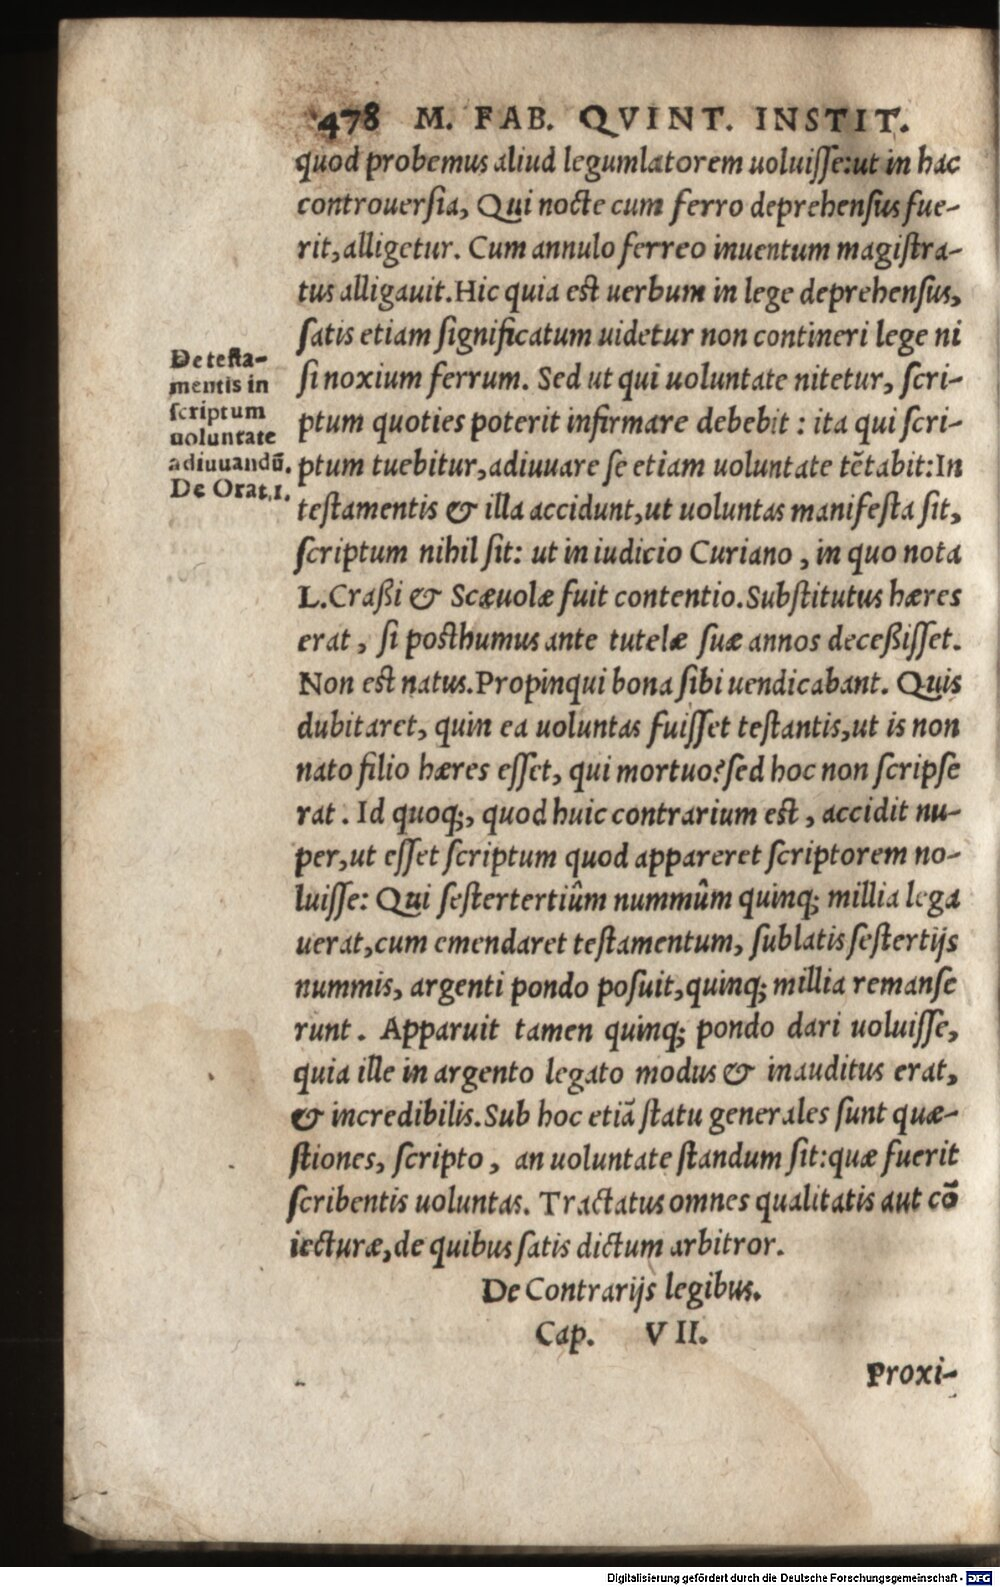 478 M. FAB. QVINT. INSTIT.
quod probemus aliud legumlatorem uoluisse:ut in hac
controuersia, Qui nocte cum ferro deprehensus fue-
rit, alligetur. Cum annulo ferreo inuentum magistra-
tus alligauit. Hic quia est uerbum in lege deprehensus,
satis etiam significatum uidetur non contineri lege ni
si noxium ferrum. Sed ut qui uoluntate nitetur, scri-
ptum quoties poterit infirmare debebit : ita qui scri-
ptum tuebitur, adiuuare se etiam uoluntate tẽtabit: In
testamentis & illa accidunt, ut uoluntas manifesta sit,
scriptum nihil sit: ut in iudicio Curiano , in quo nota
L. Craßi & Scæuolæ fuit contentio. Substitutus hæres
erat , si posthumus ante tutelæ suæ annos deceßisset.
Non est natus. Propinqui bona sibi uendicabant. Quis
dubitaret, quin ea uoluntas fuisset testantis, ut is non
nato filio hæres esset, qui mortuo? sed hoc non scripse
rat . Id quoq;, quod huic contrarium est , accidit nu-
per, ut esset scriptum quod appareret scriptorem no-
luisse: Qui sestertertiûm nummûm quinq; millia lega
uerat, cum emendaret testamentum, sublatis sestertijs
nummis, argenti pondo posuit, quinq; millia remanse
runt . Apparuit tamen quinq; pondo dari uoluisse,
quia ille in argento legato modus & inauditus erat,
& incredibilis. Sub hoc etiã statu generales sunt quæ-
stiones, scripto , an uoluntate standum sit: quæ fuerit
scribentis uoluntas. Tractatus omnes qualitatis aut cõ
iecturæ, de quibus satis dictum arbitror.
De testa-
mentis in
scriptum
uoluntate
adiuuandũ.
De Orat. 1.
De Contrarijs legibus.
Cap. VII.
Proxi-
Digitalisierung gefördert durch die Deutsche Forschungsgemeinschaft - DFG